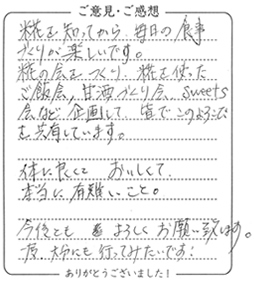 ご意見・ご感想
糀を知ってから 毎日の食事
づくりが楽しいです。
糀の会をつくり、糀を使った
ご飯会、甘酒づくり会、sweets
会など企画して、皆でこのよろこび
を共有しています。
体に良くて おいしくて、
本当に有難いこと。
今後とも よろしくお願い致します。
大分にも行ってみたいです!
ありがとうございました!